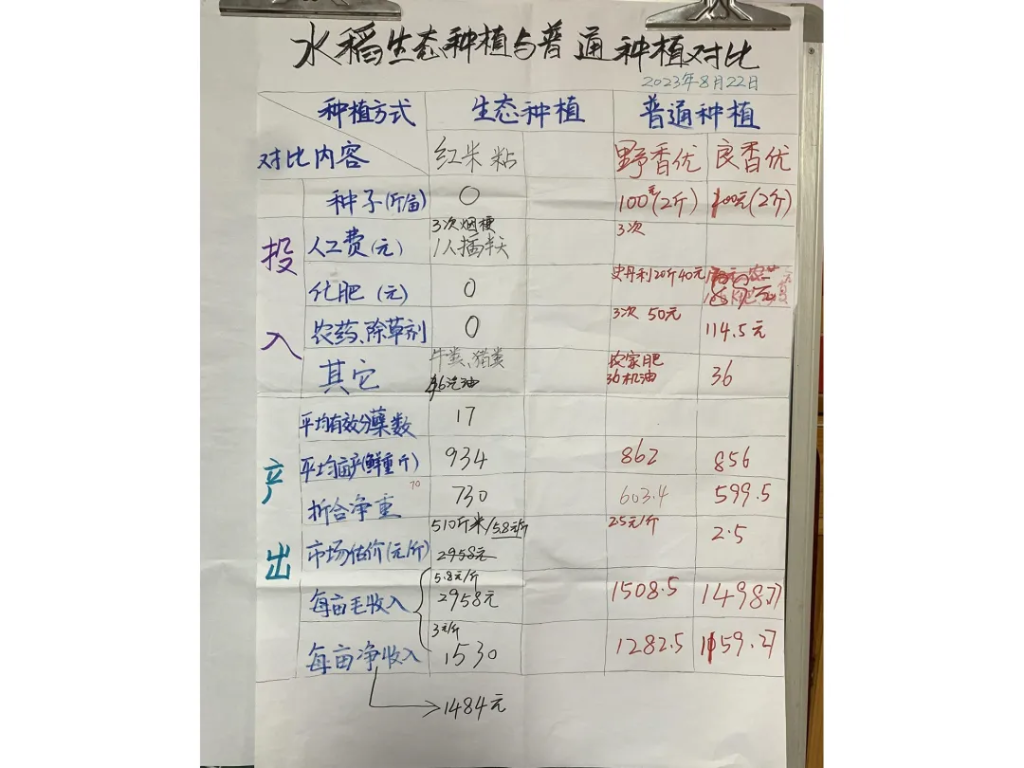 水稻生态种植与普通种植对比
2023年8月22日
种植方式 生态种植 普通种植
对比内容 红米粘 野香优 良香优
投入
种子(斤/亩) 0 100元(2斤) 100元(2斤)
3次烟梗 3次
人工费(元) 1人插半天
史丹利20斤40元
化肥(元) 0
3次 50元
农药、除草剂 0 114.5元
牛粪、猪粪 农家肥
其它 46汽油 36机油 36
产出
平均有效分蘖数 17
平均亩产(鲜重斤) 934 862 856
70
折合净重 730 603.4 599.5
510斤米/5.8元/斤 25元/斤
市场估价(元/斤) 2958元 2.5
5.8元/斤
每亩毛收入 2958元 1508.5 1498.77
3元/斤
每亩净收入 1530 1282.5 1159.27
1484元